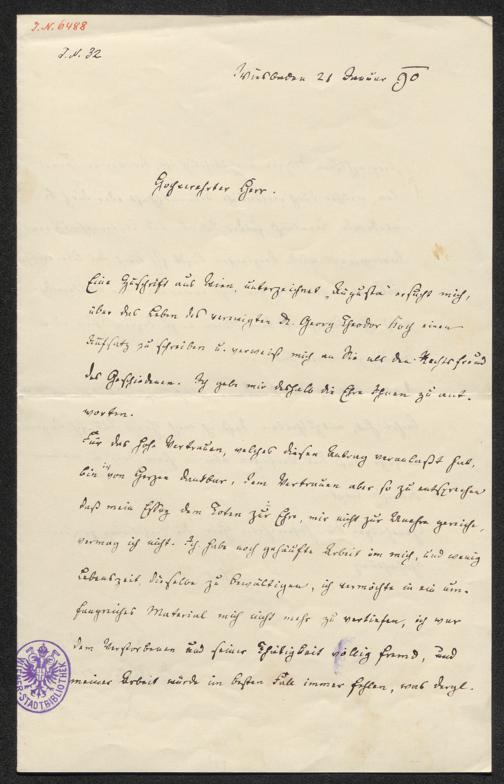 J.N. 6488
J.N. 32
Wiesbaden 21 Januar 90
Hochverehrter Herr.
Eine Zuschrift aus Wien, unterzeichnet „Augusta" ersucht mich,
über das Leben des verewigten Dr. Georg Theodor einen
Aufsatz zu schreiben u. verweist mich an Sie als den Rechtsfreund
des Geschiedenen. Ich gebe mir deshalb die Ehre Ihnen zu ant-
worten.
Für das hohe Vertrauen, welches diesen Antrag veranlaßt hat,
bin ich von Herzen dankbar, dem Vertrauen aber so zu entsprechen
daß mein Essay dem Toten zur Ehre, mir nicht zur Unehre gereiche,
vermag ich nicht. Ich habe noch gehäufte Arbeit um mich, und wenig
Lebenszeit, dieselbe zu bewältigen, ich vermöchte in ein um-
fangreiches Material mich nicht mehr zu vertiefen, ich war
dem Verstorbenen und seiner Thätigkeit völlig fremd, und
meiner Arbeit würde im besten Fall immer fehlen, was dergl.
STADTBIBLIOTHEK